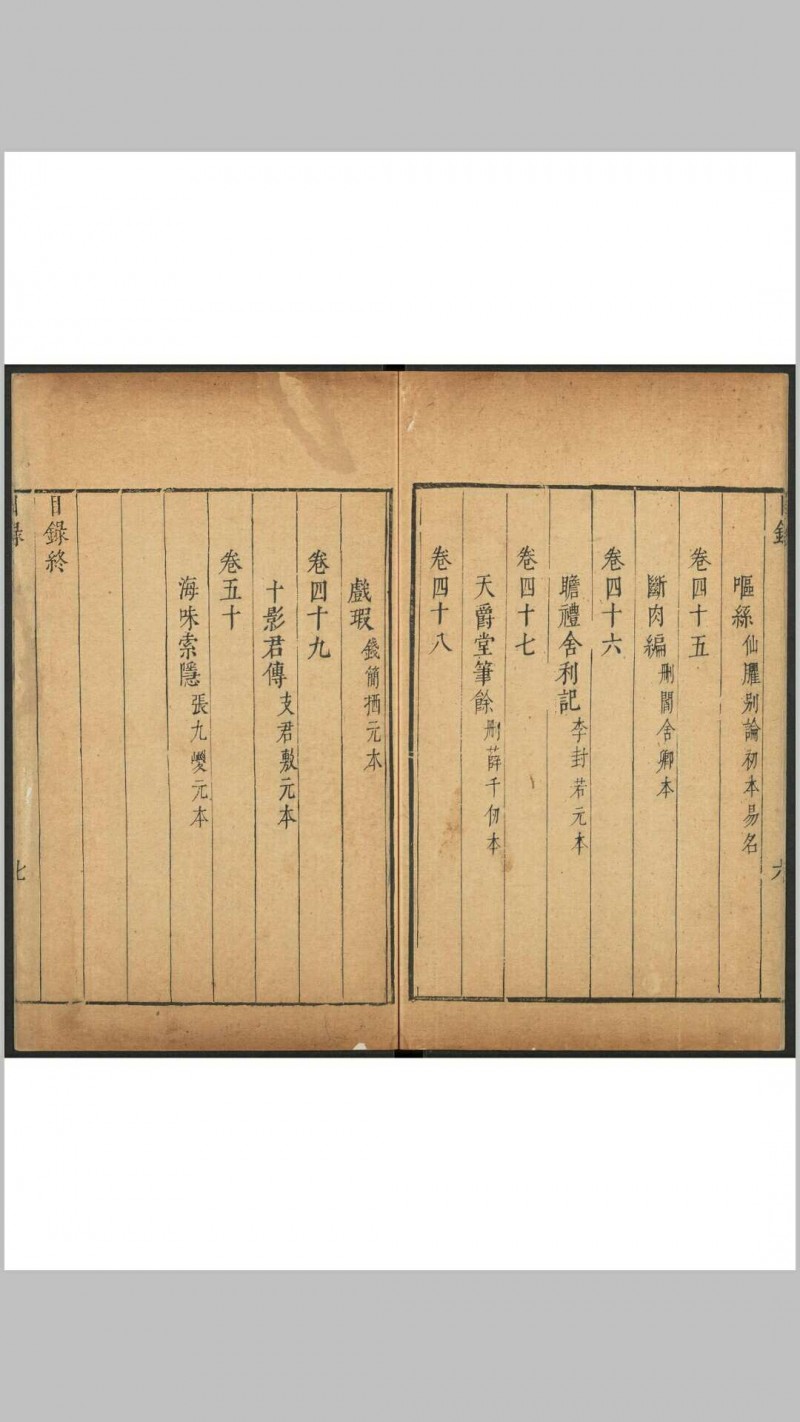 目錄
六
嘔絲仙臞别論初本易名
卷四十五
斷肉編刪閻舍卿本
卷四十六
瞻禮舍利記李封若元本
卷四十七
天爵堂筆餘刪薛千仞本
卷四十八
戲瑕錢簡栖元本
卷四十九
十影君傳支君敷元本
卷五十
海味索隱張九嵕元本
目錄終
目錄
七